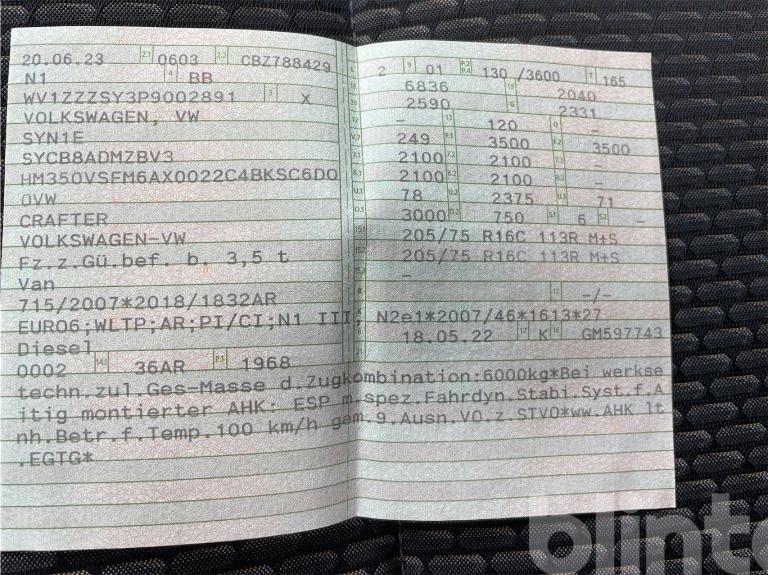 20.06.23 2.1 0603 2.2 CBZ788429
N1 4 BB
WV1ZZZSY3P9002891 3 X
VOLKSWAGEN, VW
SYN1E
SYCB8ADMZBV3
HM350VSFM6AX0022C4BKSC6DO
0VW
CRAFTER
VOLKSWAGEN-VW
Fz.z.Gü.bef. b. 3,5 t
Van
715/2007*2018/1832AR
EURO6;WLTP;AR;PI/CI;N1 III; N2
Diesel
0002 14.1 36AR P.1 1968
2 9 01 P.2 P.4 130 /3600 T 165
6836 2040
2590 G 2331
- 120 Q -
249 3500 3500
2100 2100 -
2100 2100 -
78 U.2 2375 U.3 71
3000 O.2 750 S.1 6 S.2 -
205/75 R16C 113R M+S
205/75 R16C 113R M+S
-
11 -/-
e1*2007/46*1613*27
18.05.22 17 K 16 GM597743
techn.zul.Ges-Masse d.Zugkombination:6000kg*Bei werkse
itig montierter AHK: ESP m.spez.Fahrdyn.Stabi.Syst.f.A
nh.Betr.f.Temp.100 km/h gem.9.Ausn.VO.z.STVO*ww.AHK lt
.EGTG*
blinto